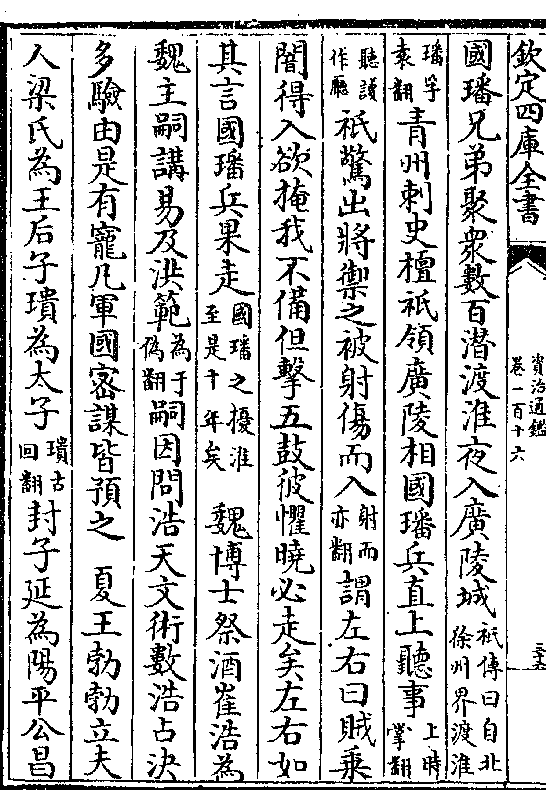 欽定四庫全書
資治通鑑
卷一百十六
國璠兄弟聚衆數百潜渡淮夜入廣陵城祗傳曰自北徐州界渡淮
璠孚袁翻青州刺史檀祗領廣陵相國璠兵直上聽事上時掌翻
聽讀作廳祗驚出將禦之被射傷而入射而亦翻謂左右曰賊乗
闇得入欲掩我不備但擊五鼓彼懼曉必走矣左右如
其言國璠兵果走國璠之擾淮至是十年矣 魏博士祭酒崔浩為
魏主嗣講易及洪範為于偽翻嗣因問浩天文術數浩占決
多驗由是有寵凡軍國密謀皆預之 夏王勃勃立夫
人梁氏為王后子璝為太子璝古回翻封子延為陽平公昌